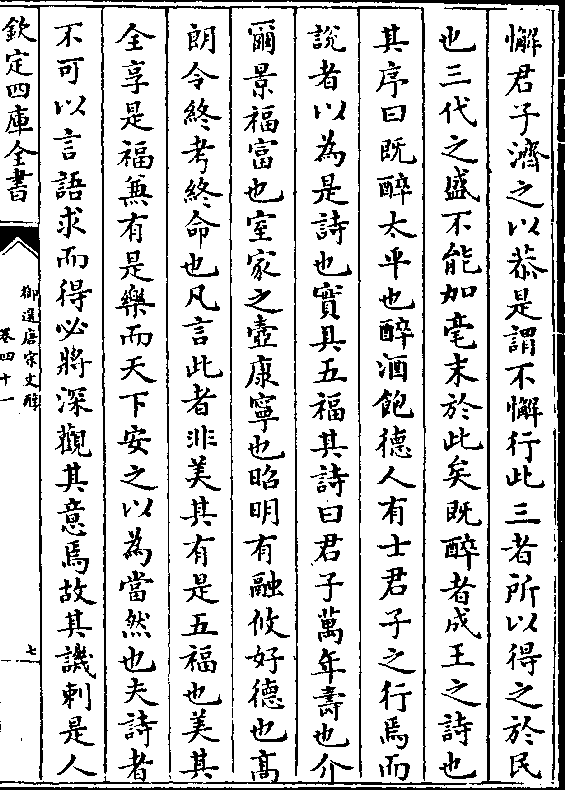 懈君子濟之以恭是謂不懈行此三者所以得之於民
也三代之盛不能加毫末於此矣既醉者成王之詩也
其序曰既醉太平也醉酒飽德人有士君子之行焉而
說者以為是詩也實具五福其詩曰君子萬年壽也介
爾景福富也室家之壼康寧也昭明有融攸好德也高
朗令終考終命也凡言此者非美其有是五福也美其
全享是福兼有是樂而天下安之以為當然也夫詩者
不可以言語求而得必將深觀其意焉故其譏刺是人
欽定四庫全書
御選唐宋文醇
卷四十一
七